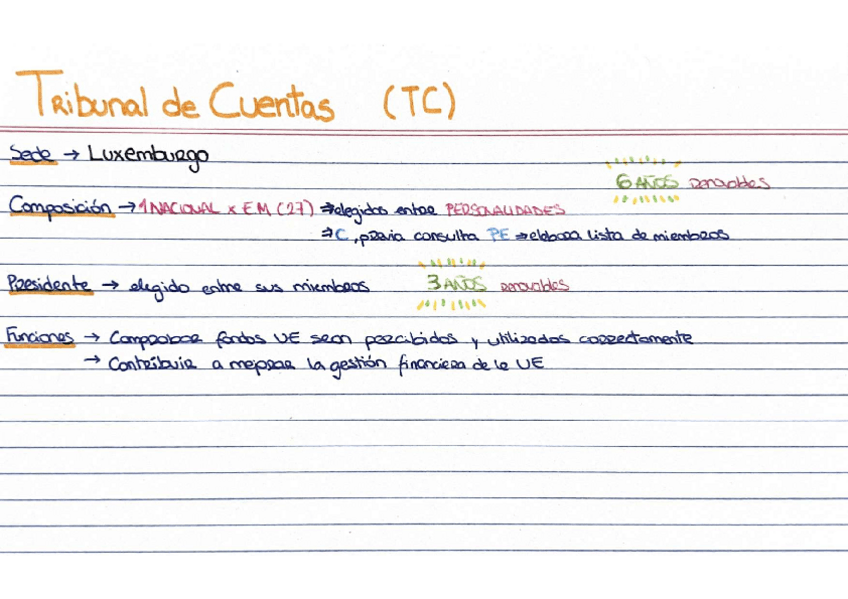 Tribunal de Cuentas (TC)
Sede → Luxemburgo
6 AÑOS renovables
Composición → 1 NACIONAL x EM (27) ⇒ elegidos entre PERSONALIDADES
⇒ C, previa consulta PE ⇒ elabora lista de miembros
Presidente → elegido entre sus miembros 3 AÑOS renovables
Funciones → Comprobar fondos UE sean percibidos y utilizados correctamente
→ Contribuir a mejorar la gestión financiera de la UE